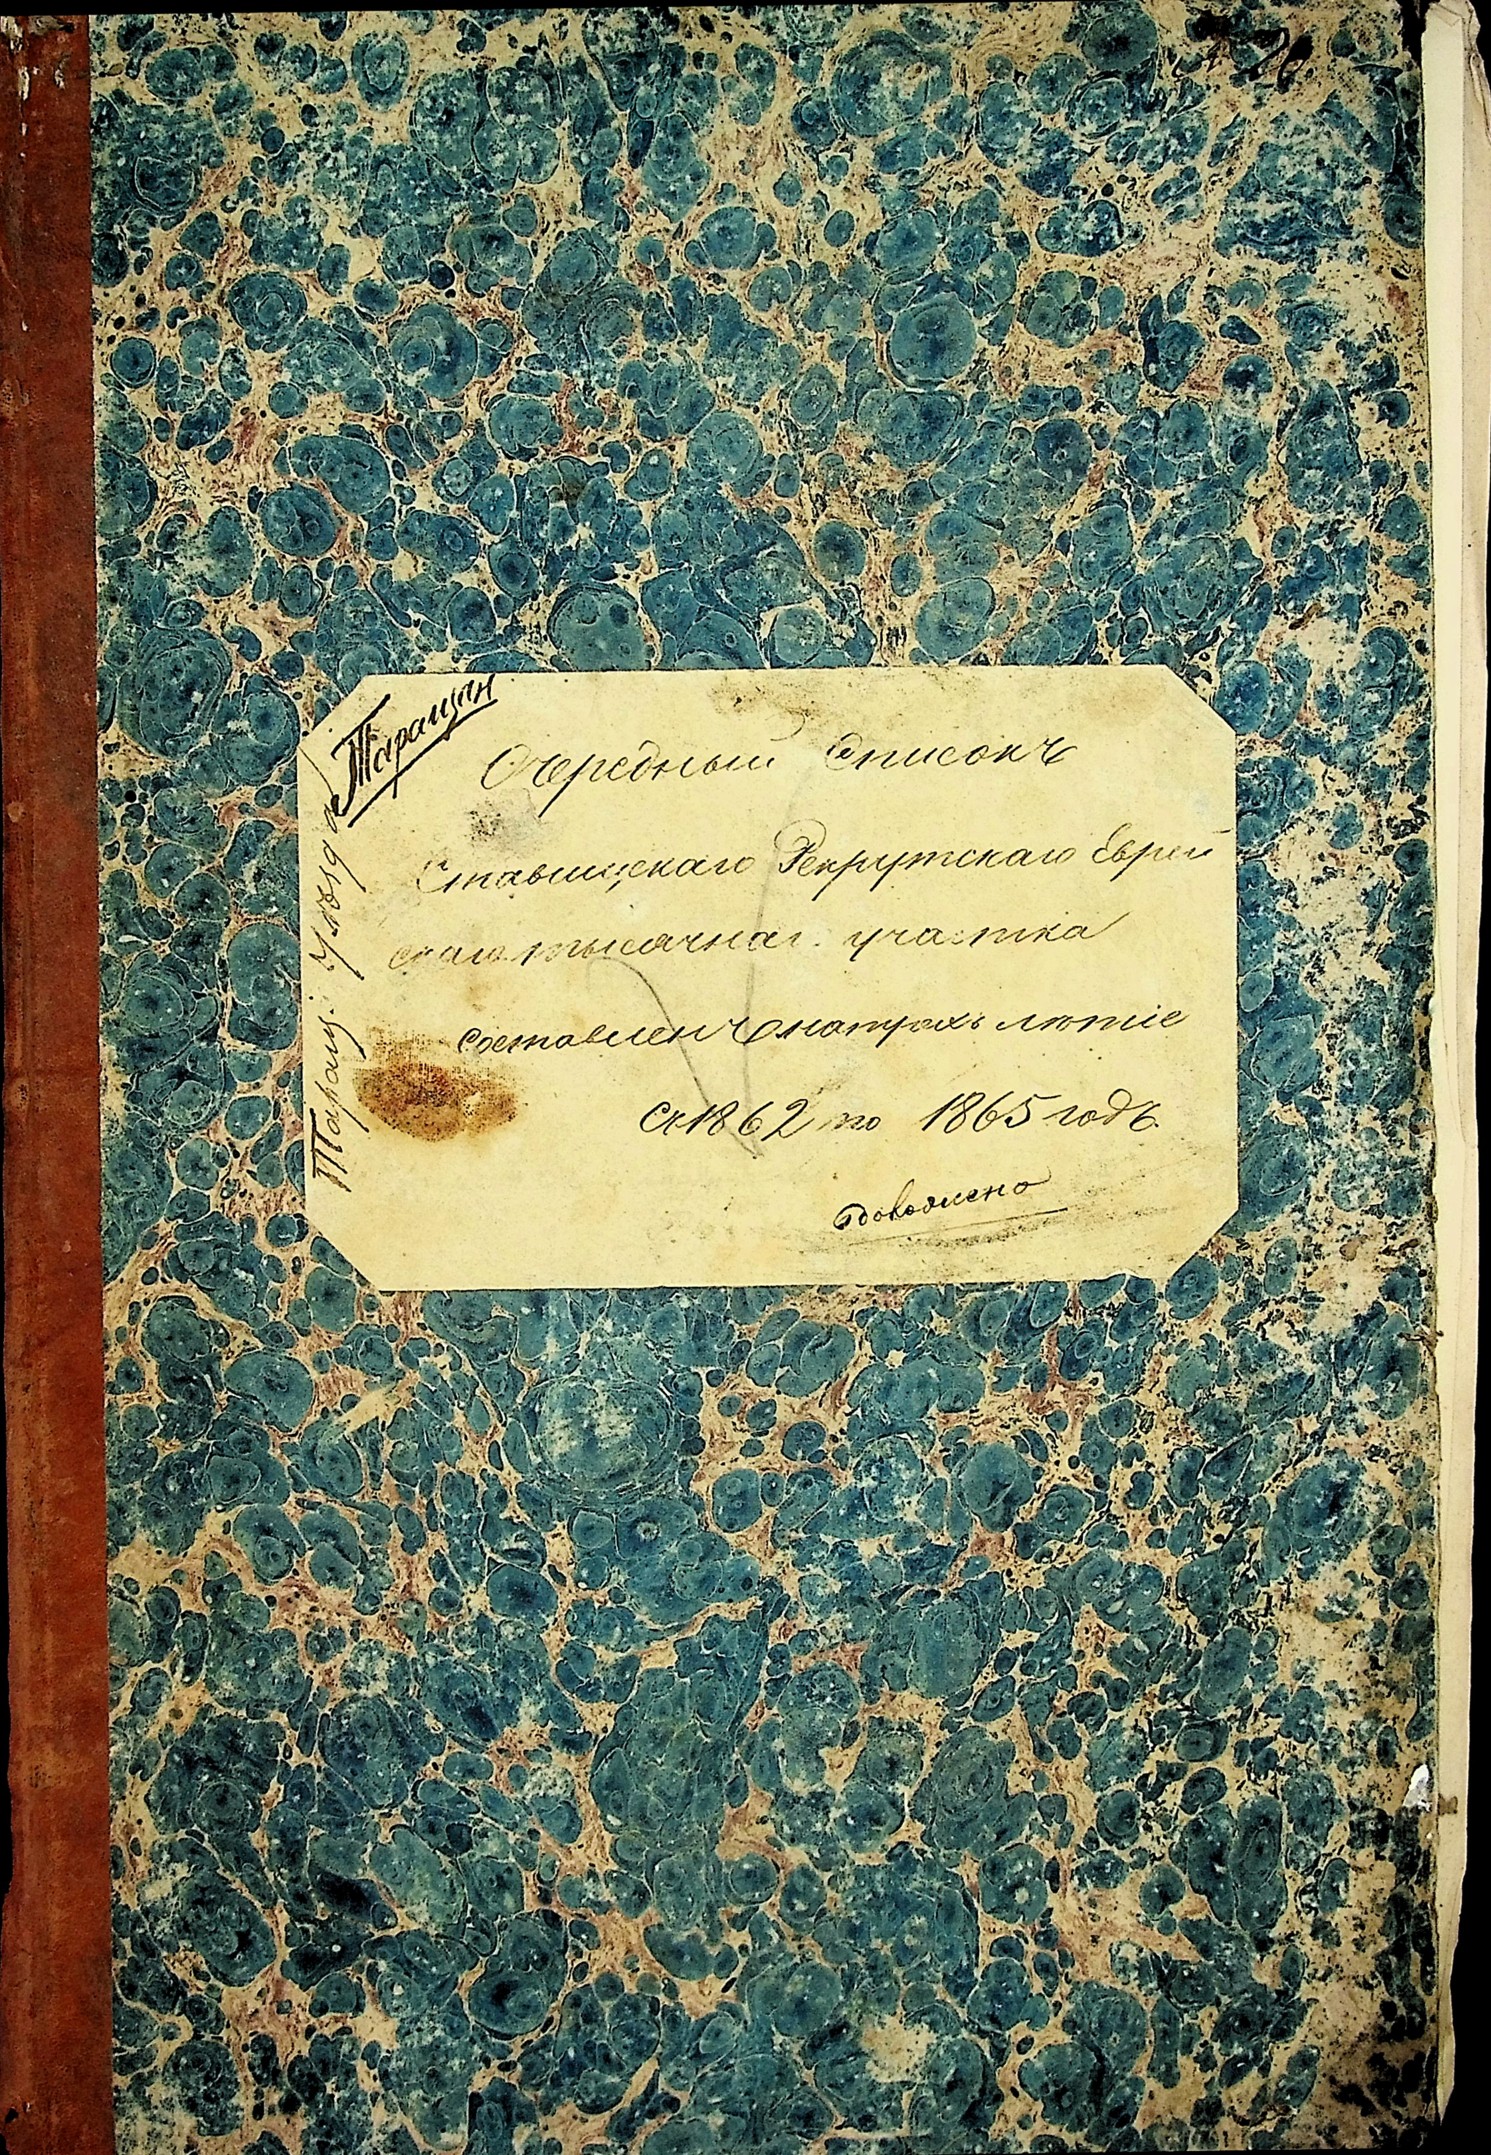 № 26
Таращан
Таращ: Уѣзда
Очередный Списокъ
Ставищскаго Рекрутскаго Еврей
скаго тысячнаг. участка
составленъ натрохълѣтіе
Съ 1862 по 1865 годъ.